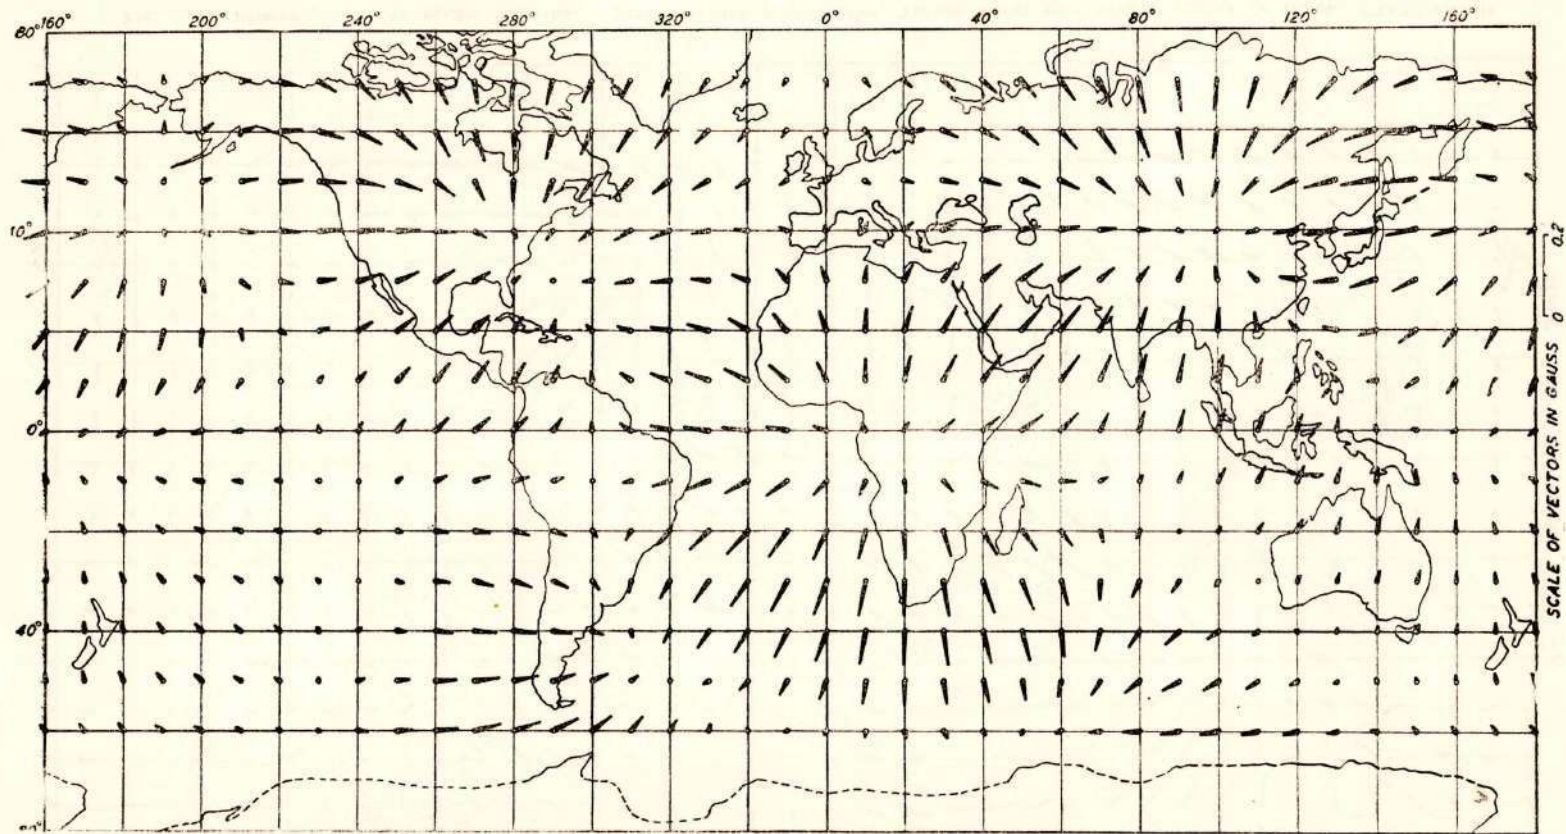 160° 200° 240° 280° 320° 0° 40° 80° 120° 160°
80°
10°
0°
40°
SCALE OF VECTORS IN GAUSS 0 0.2